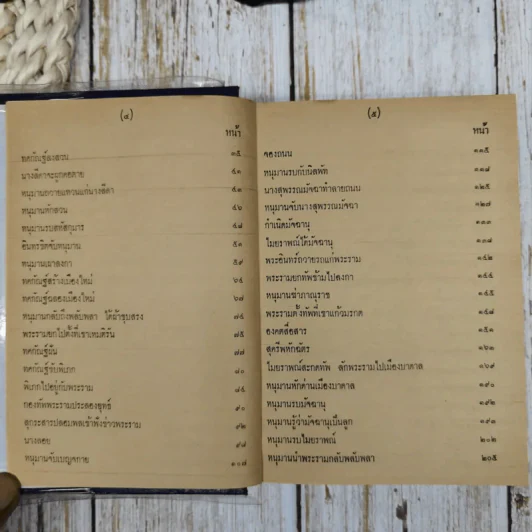 (๔)
หน้า
ทศกัณฐ์ลงสวน ๓๕
นางสีดาจะผูกคอตาย ๔๓
หนุมานถวายแหวนแก่นางสีดา
หนุมานหักสวน ๔๖
หนุมานรบสหัสกุมาร ๔๘
อินทรชิตจับหนุมาน ๕๓
หนุมานเผาลงกา ๕๙
ทศกัณฐ์สร้างเมืองใหม่ ๖๕
ทศกัณฐ์ฉลองเมืองใหม่ ๖๗
หนุมานกลับถึงพลับพลา ได้ผ้าชุบสรง ๗๔
พระรามยกไปตั้งที่เขาเหมติรัน ๗๕
ทศกัณฐ์ฝัน ๗๗
ทศกัณฐ์ขับพิเภก ๘๐
พิเภกไปอยู่กับพระราม ๘๕
กองทัพพระรามประลองยุทธ์ ๙๐
สุกระสารปลอมพลเข้าฟังข่าวพระราม ๙๒
นางลอย ๙๘
หนุมานจับเบญจกาย ๑๐๗
(๕)
หน้า
จองถนน ๑๑๕
หนุมานรบกับนิลพัท ๑๑๘
นางสุพรรณมัจฉาทำลายถนน ๑๒๕
หนุมานจับนางสุพรรณมัจฉา ๑๒๗
กำเนิดมัจฉานุ ๑๓๓
ไมยราพณ์ได้มัจฉานุ ๑๓๘
พระอินทร์ถวายรถแก่พระราม ๑๔๒
พระรามยกทัพข้ามไปลงกา ๑๔๔
หนุมานฆ่าภาณุราช ๑๔๕
พระรามตั้งทัพที่เขาแก้วมรกต ๑๔๘
องคตสื่อสาร ๑๕๑
สุครีพหักฉัตร ๑๖๓
ไมยราพณ์สะกดทัพ ลักพระรามไปเมืองบาดาล ๑๖๙
หนุมานหักด่านเมืองบาดาล ๑๙๐
หนุมานรบมัจฉานุ ๑๙๒
หนุมานรู้ว่ามัจฉานุเป็นลูก ๑๙๓
หนุมานรบไมยราพณ์ ๒๐๒
หนุมานนำพระรามกลับพลับพลา ๒๐๕